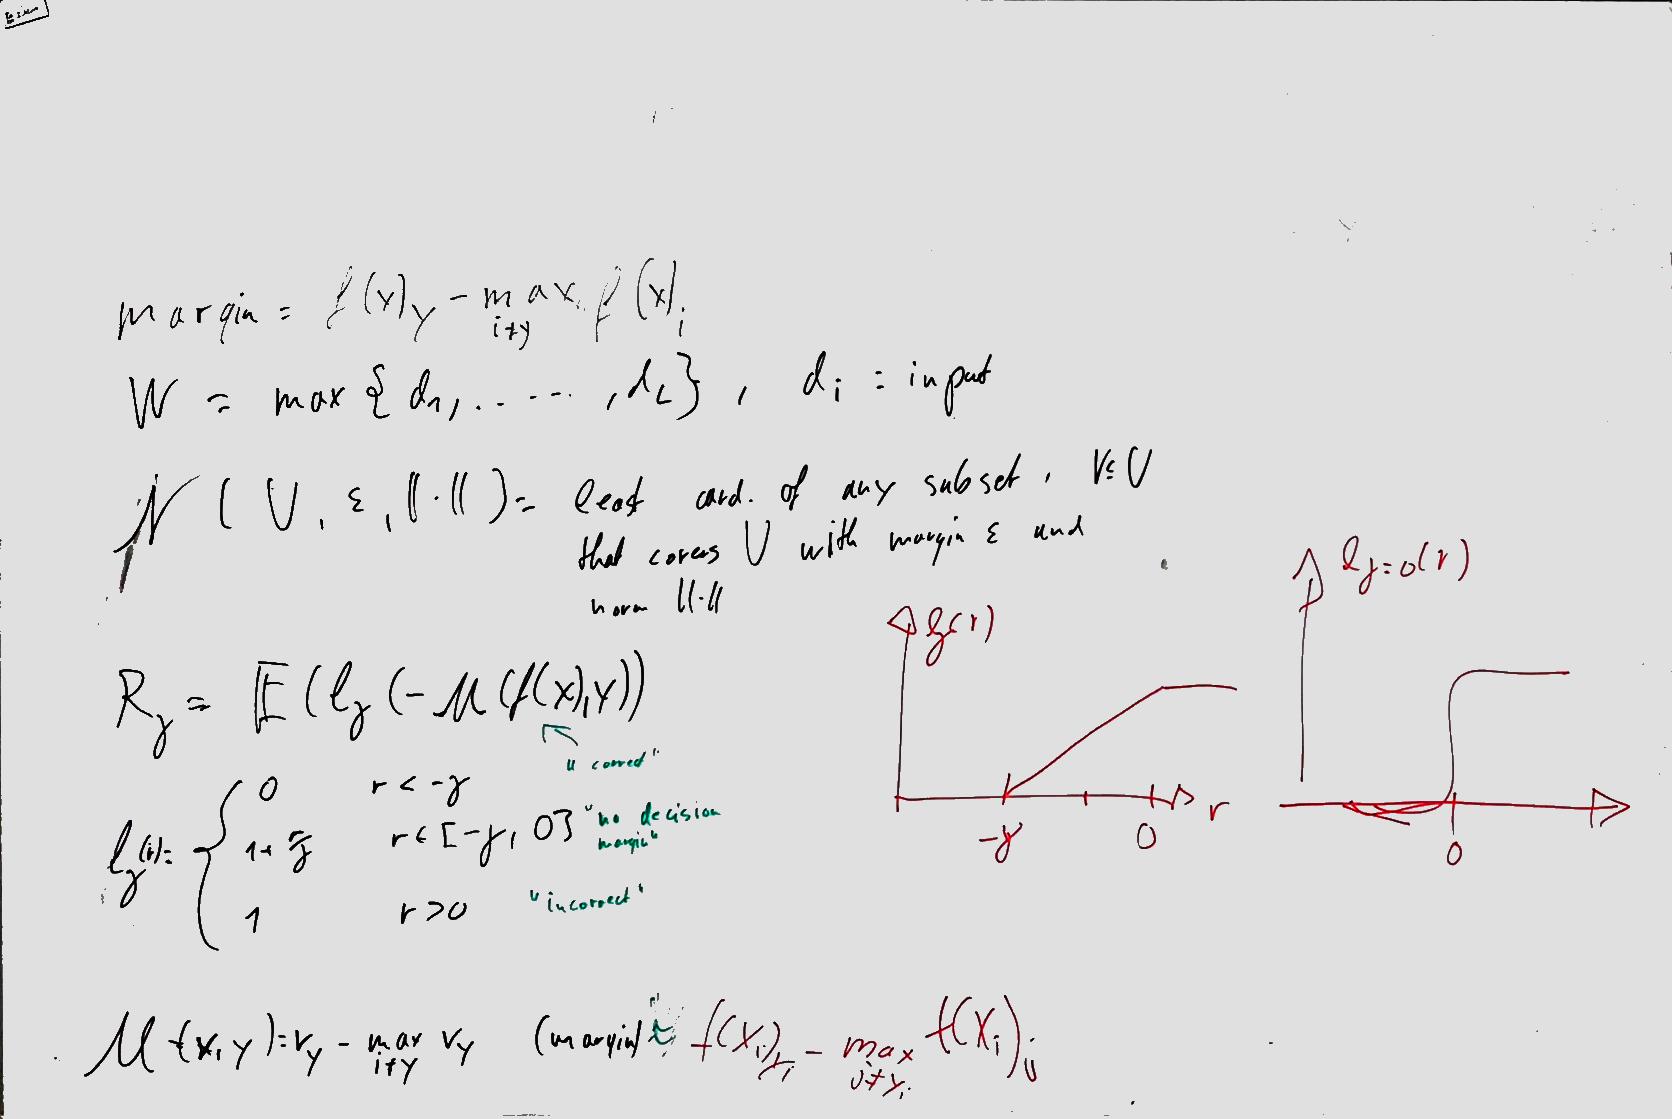 margin = f(x)_y - max_{i≠y} f(x)_i
W = max {d_1, ......, d_L} , d_i : input
𝒩 ( U, ε, ||·|| ) = least card. of any subset, V⊆U
that covers U with margin ε and
norm ||·||
l_γ=0(r)
l_γ(r)
R_γ = 𝔼(l_γ(-ℳ(f(x),y))
"correct"
l_γ(r) = {
0 r < -γ
1+ r/γ r ∈ [-γ, 0] "no decision
margin"
1 r > 0 "incorrect"
-γ 0 r
0
ℳ f(x,y) = v_y - max_{i≠y} v_y (margin) f(x_i)_{y_i} - max_{j≠y_i} f(x_i)_j